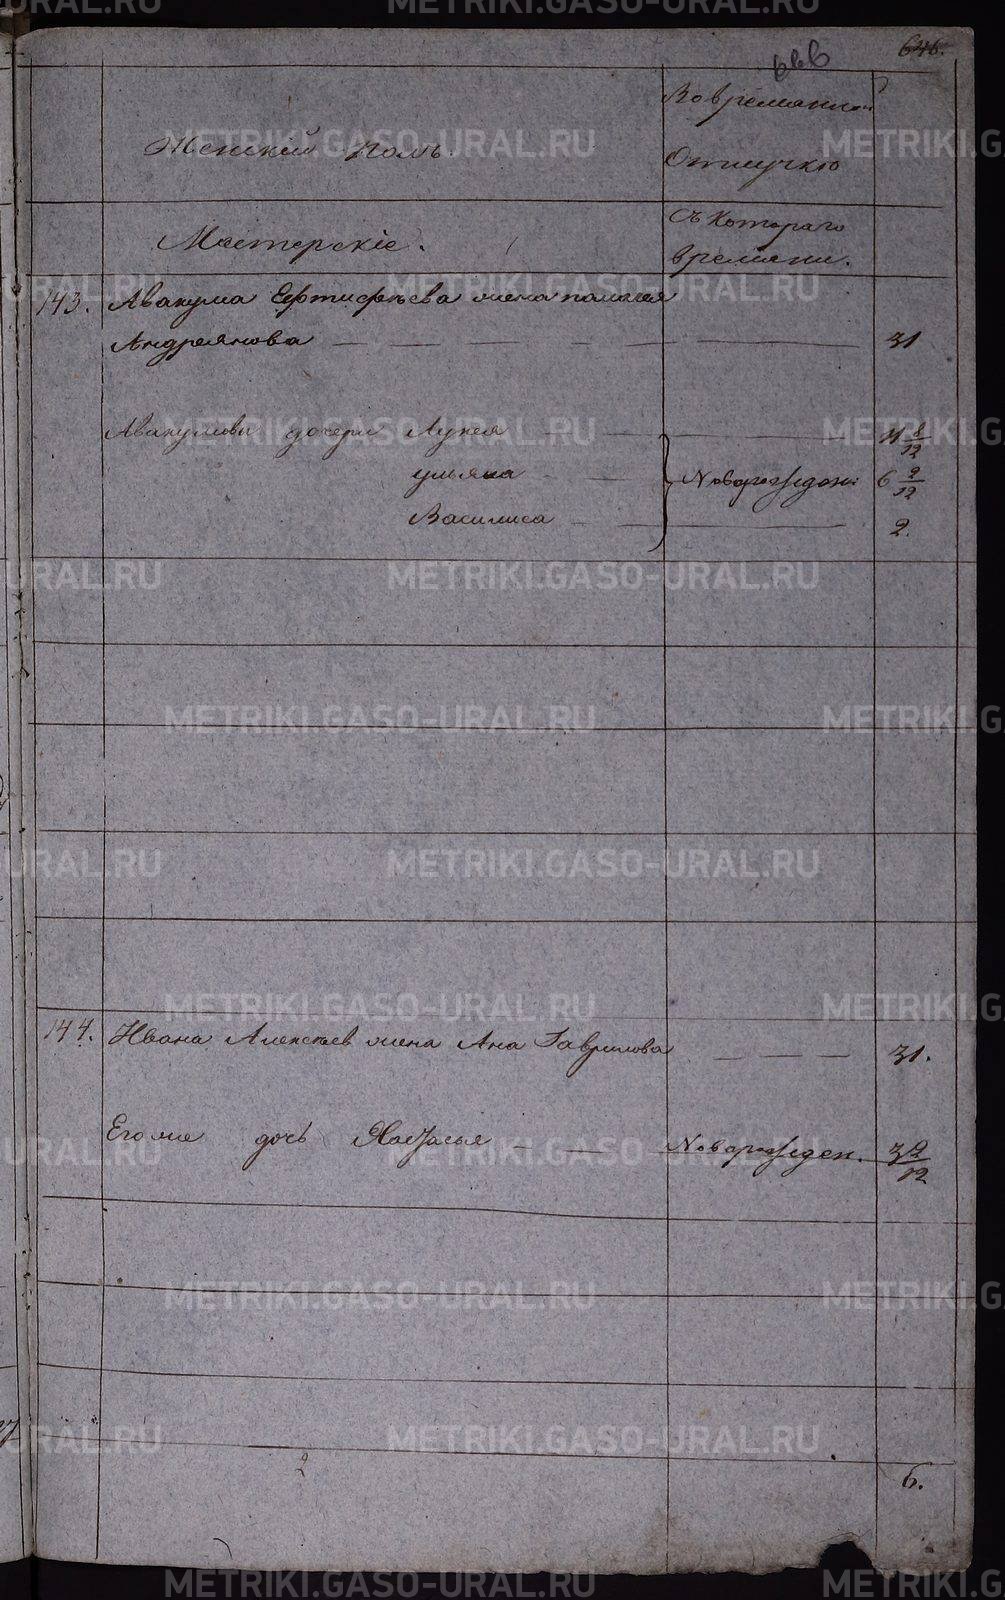 646.
666
Женскій полъ.
Во временной
Отлучкѣ
Мастерскіе.
съ котораго
времяни.
143. Авакума Ефтифѣева жена
Андреянова 31
Авакумовы дочери Лукея 11 8/12
ульяна Новорожден: 6 9/12
Василиса 2.
144. Ивана Алексѣев жена Ана Гаврилова 31.
Егоже дочь Настасья Новорожден. 3 9/12
2
6.
METRIKI.GASO-URAL.RU